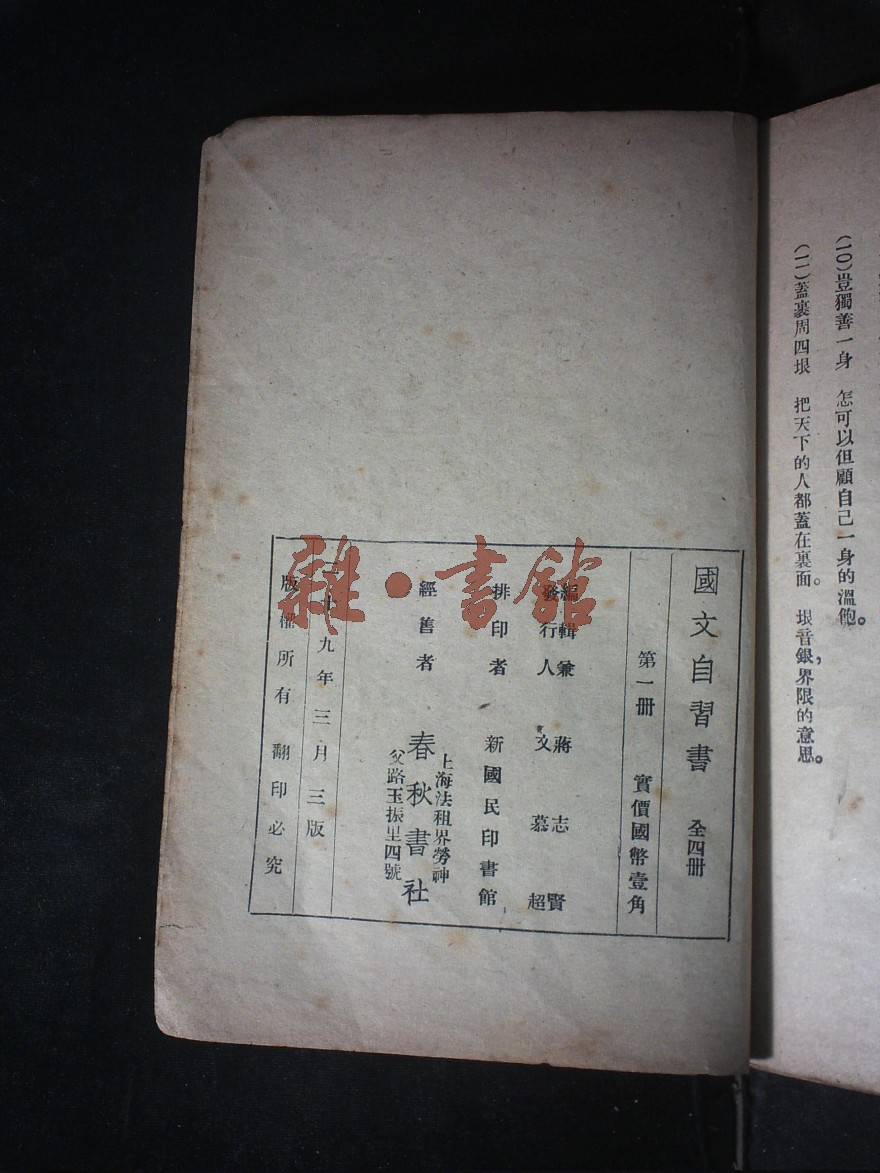 (10)豈獨善一身　怎可以但顧自己一身的溫飽。
(一一)蓋裹周四垠　把天下的人都蓋在裏面。垠音銀,界限的意思。
國文自習書　全四冊
第一冊　實價國幣壹角
編輯兼　蔣志賢
發行人　文慕超
排印者　新國民印書館
經售者　春秋書社
上海法租界勞神
父路玉振里四號
廿九年三月三版
版權所有　翻印必究
雜·書館